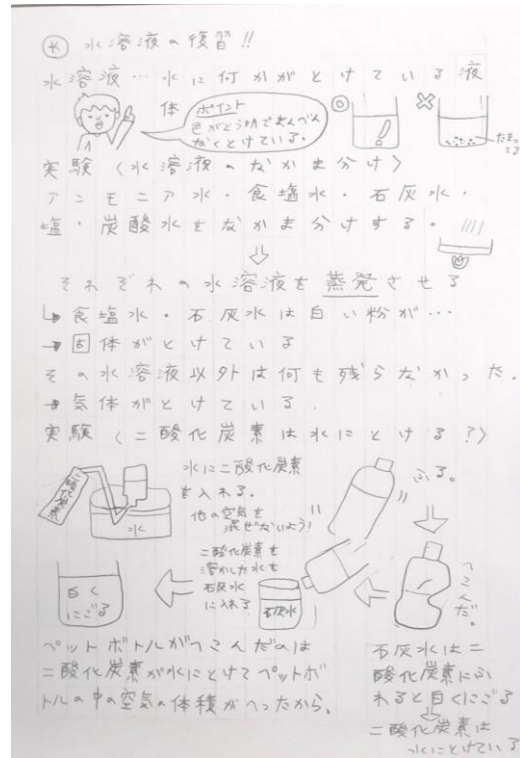 水 水溶液の復習!!
水溶液…水に何かがとけている液体
ポイント
色がとう明でまんべんなくとけている。
たまってる
実験〈水溶液のなかま分け〉
アンモニア水・食塩水・石灰水・
塩・炭酸水をなかま分けする。
それぞれの水溶液を蒸発させる
食塩水・石灰水は白い粉が…
固体がとけている
その水溶液以外は何も残らなかった。
気体がとけている.
実験〈二酸化炭素は水にとける?〉
二酸化炭素
水
水に二酸化炭素
を入れる。
他の空気を
混ぜないよう!
ふる。
へこんだ。
二酸化炭素を
溶かした水を
石灰水
に入れる
石灰水
白く
にごる
ペットボトルがへこんだのは
二酸化炭素が水にとけてペットボ
トルの中の空気の体積がへったから。
石灰水は二
酸化炭素にふ
れると白くにごる
二酸化炭素は
水にとけている